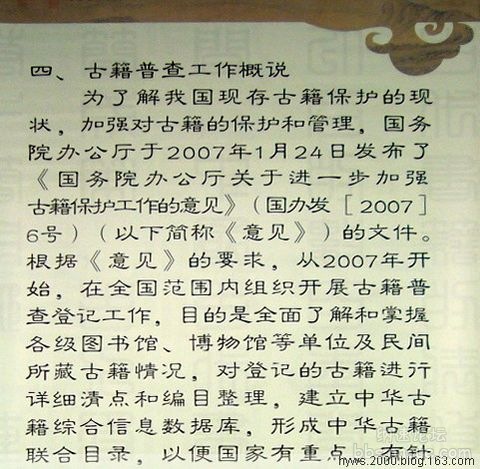 四、古籍普查工作概说
为了解我国现存古籍保护的现
状，加强对古籍的保护和管理，国务
院办公厅于2007年1月24日发布了
《国务院办公厅关于进一步加强
古籍保护工作的意见》（国办发［2007］
6号）（以下简称《意见》）的文件。
根据《意见》的要求，从2007年开
始，在全国范围内组织开展古籍普
查登记工作，目的是全面了解和掌握
各级图书馆、博物馆等单位及民间
所藏古籍情况，对登记的古籍进行
详细清点和编目整理，建立中华古
籍综合信息数据库，形成中华古籍
联合目录，以便国家有重点、有
hyws.2000.blog.163.com